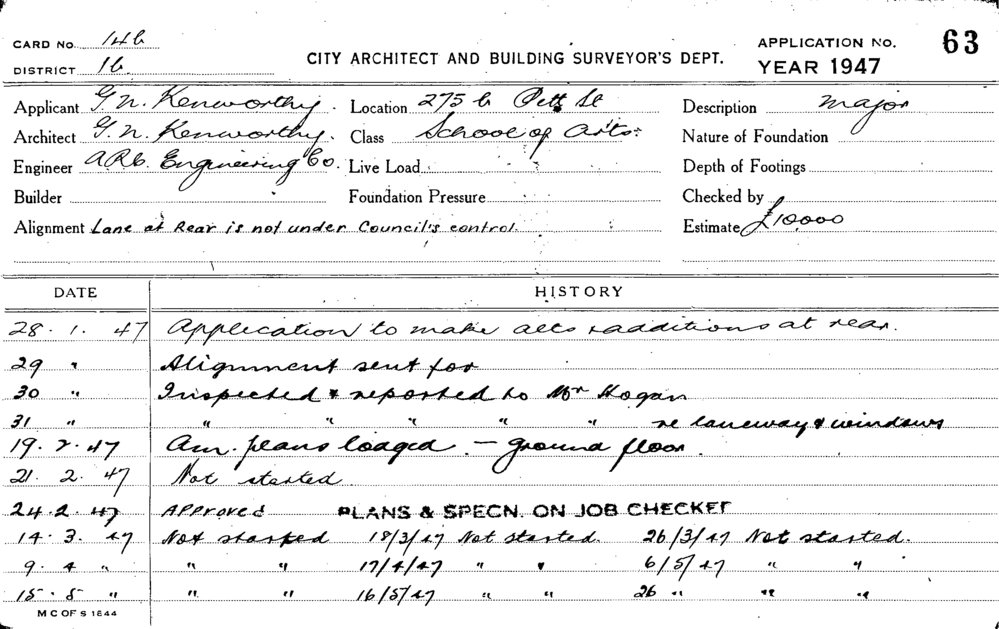 CARD No. 14b
DISTRICT 1b.
CITY ARCHITECT AND BUILDING SURVEYOR'S DEPT.
APPLICATION No. 63
YEAR 1947
Applicant G. N. Kenworthy. Location 275 b Pitt St Description major
Architect G. N. Kenworthy. Class School of Arts. Nature of Foundation
Engineer A.R.C. Engineering Co. Live Load Depth of Footings
Builder Foundation Pressure Checked by
Alignment Lane at Rear is not under Council's control. Estimate £10,000
DATE HISTORY
28 . 1 . 47 Application to make alts & additions at rear.
29 " Alignment sent for
30 " Inspected & reported to Mr Hogan
31 " " " " " " re laneway & windows
19 . 2 . 47 Am. plans lodged — ground floor.
21 . 2 . 47 Not started
24 . 2 . 47 Approved PLANS & SPECN. ON JOB CHECKED
14 . 3 . 47 Not started 18/3/47 Not started. 26/3/47 Not started.
9 . 4 " " " 17/4/47 " " 6/5/47 " "
15 . 5 " " " 16/5/47 " " 26 " " "
M C OF S 1844